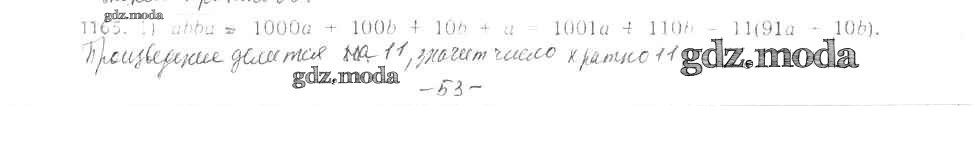 gdz.moda
1165. 1) abba = 1000a + 100b + 10b + a = 1001a + 110b = 11(91a + 10b).
Произведение делится на 11, значит число кратно 11 gdz.moda
gdz.moda
-53-